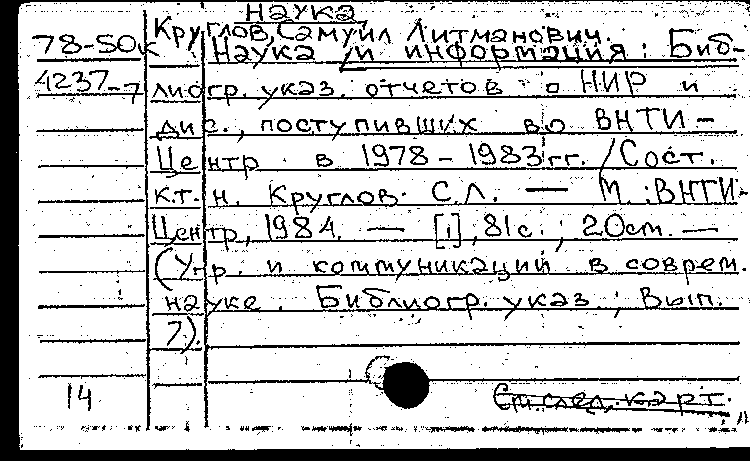 Наука
78-50к Круглов, Самуил Литманович.
Наука и информация: Биб-
4237-7 лиогр. указ. отчетов о НИР и
дис., поступивших во ВНТИ-
Центр в 1978-1983 гг. / Сост.
к.т.н. Круглов С.Л. — М.: ВНТИ-
Центр, 1984. — [1], 81 с.; 20 см. —
(Упр. и коммуникаций в соврем.
науке. Библиогр. указ.; Вып.
7).
14 См. след. карт.